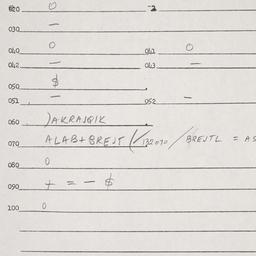 020 0 -2
030 –
040 0 041 0
042 – 043 –
050 $
051 – 052 –
060 )AKRAJQIK
070 ALAB+BREJT (/132070/BREJTL = AS
080 0
090 + = – $
100 0